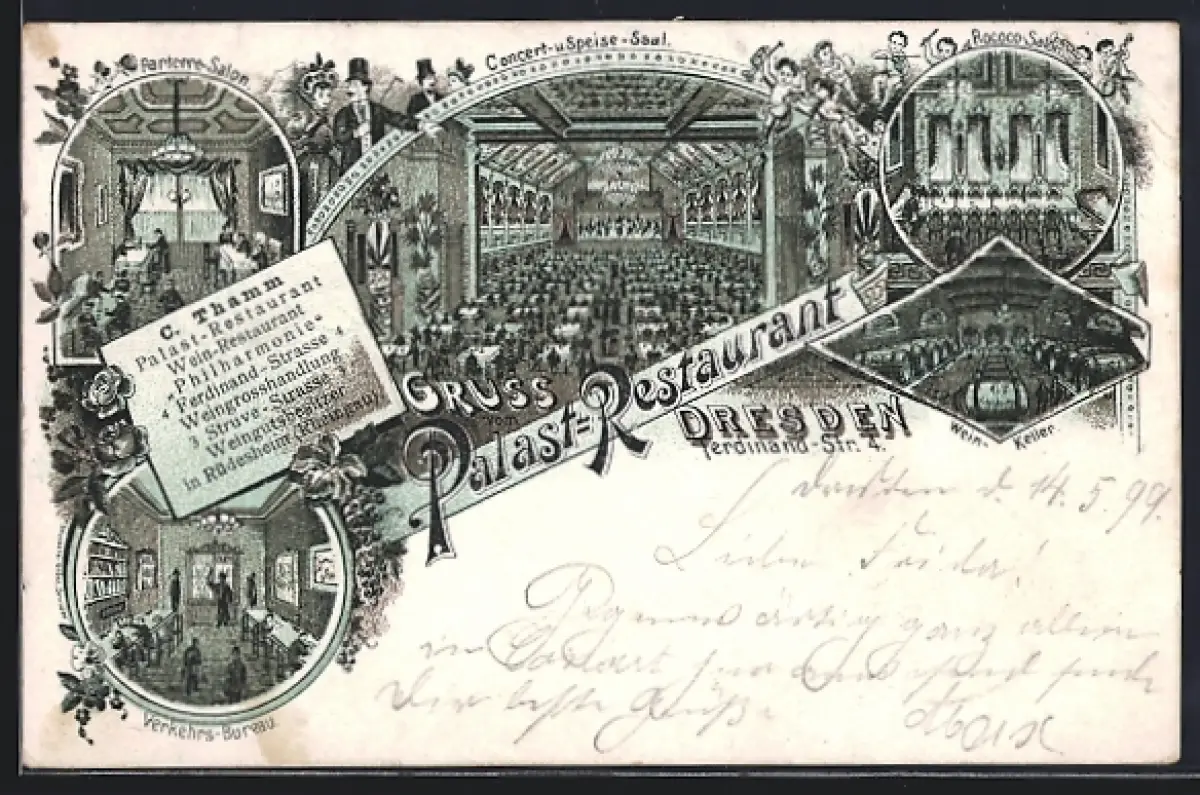 Parterre-Salon
Concert-u Speise-Saal.
Rococo-Salon
C. Thamm
Palast-Restaurant
Wein-Restaurant
"Philharmonie"
4 Ferdinand-Strasse 4
Weingrosshandlung
3 Struve-Strasse 3
Weingutsbesitzer
in Rüdesheim (Rheingau)
GRUSS
vom
Palast-Restaurant
DRESDEN
Ferdinand-Str. 4.
Wein-Keller
Verkehrs-Bureau
Dresden d. 14.5.99.
Liebe Frieda!
ganz allein
in
Dir beste Grüße
Max